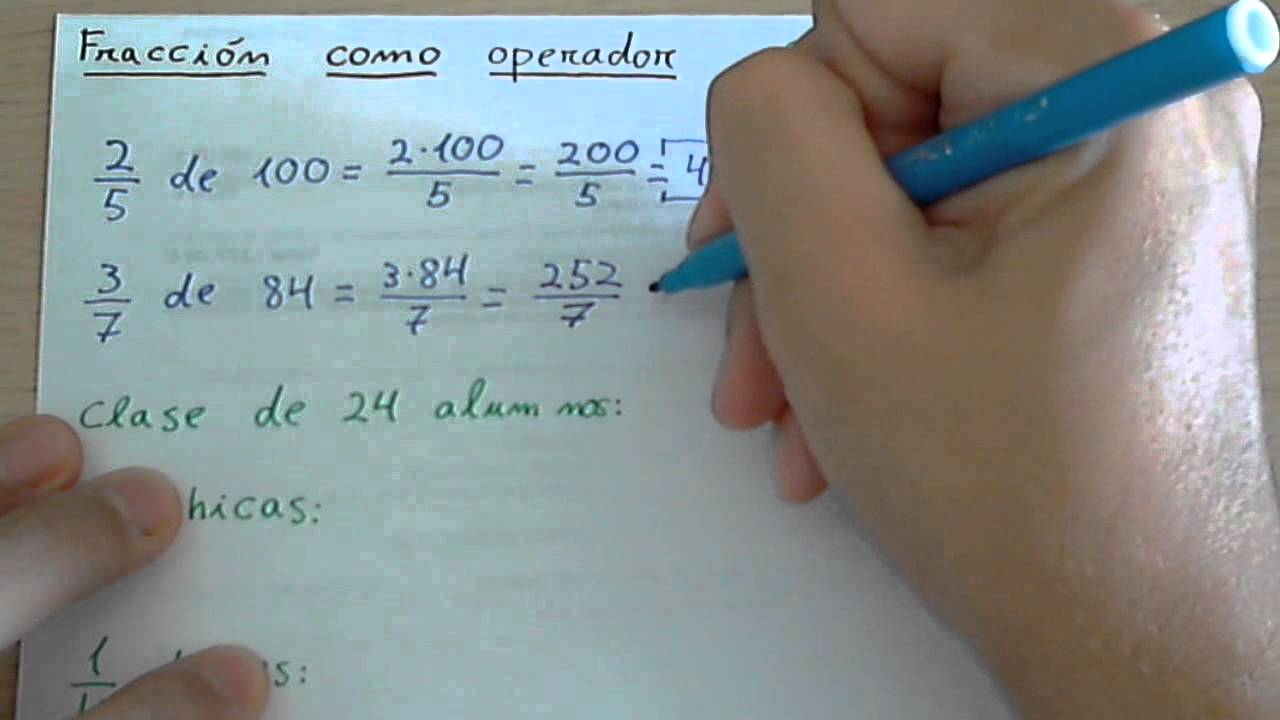 Fracción como operador
2/5 de 100 = 2·100/5 = 200/5 = 4
3/7 de 84 = 3·84/7 = 252/7
Clase de 24 alumnos:
hicas:
1
s: